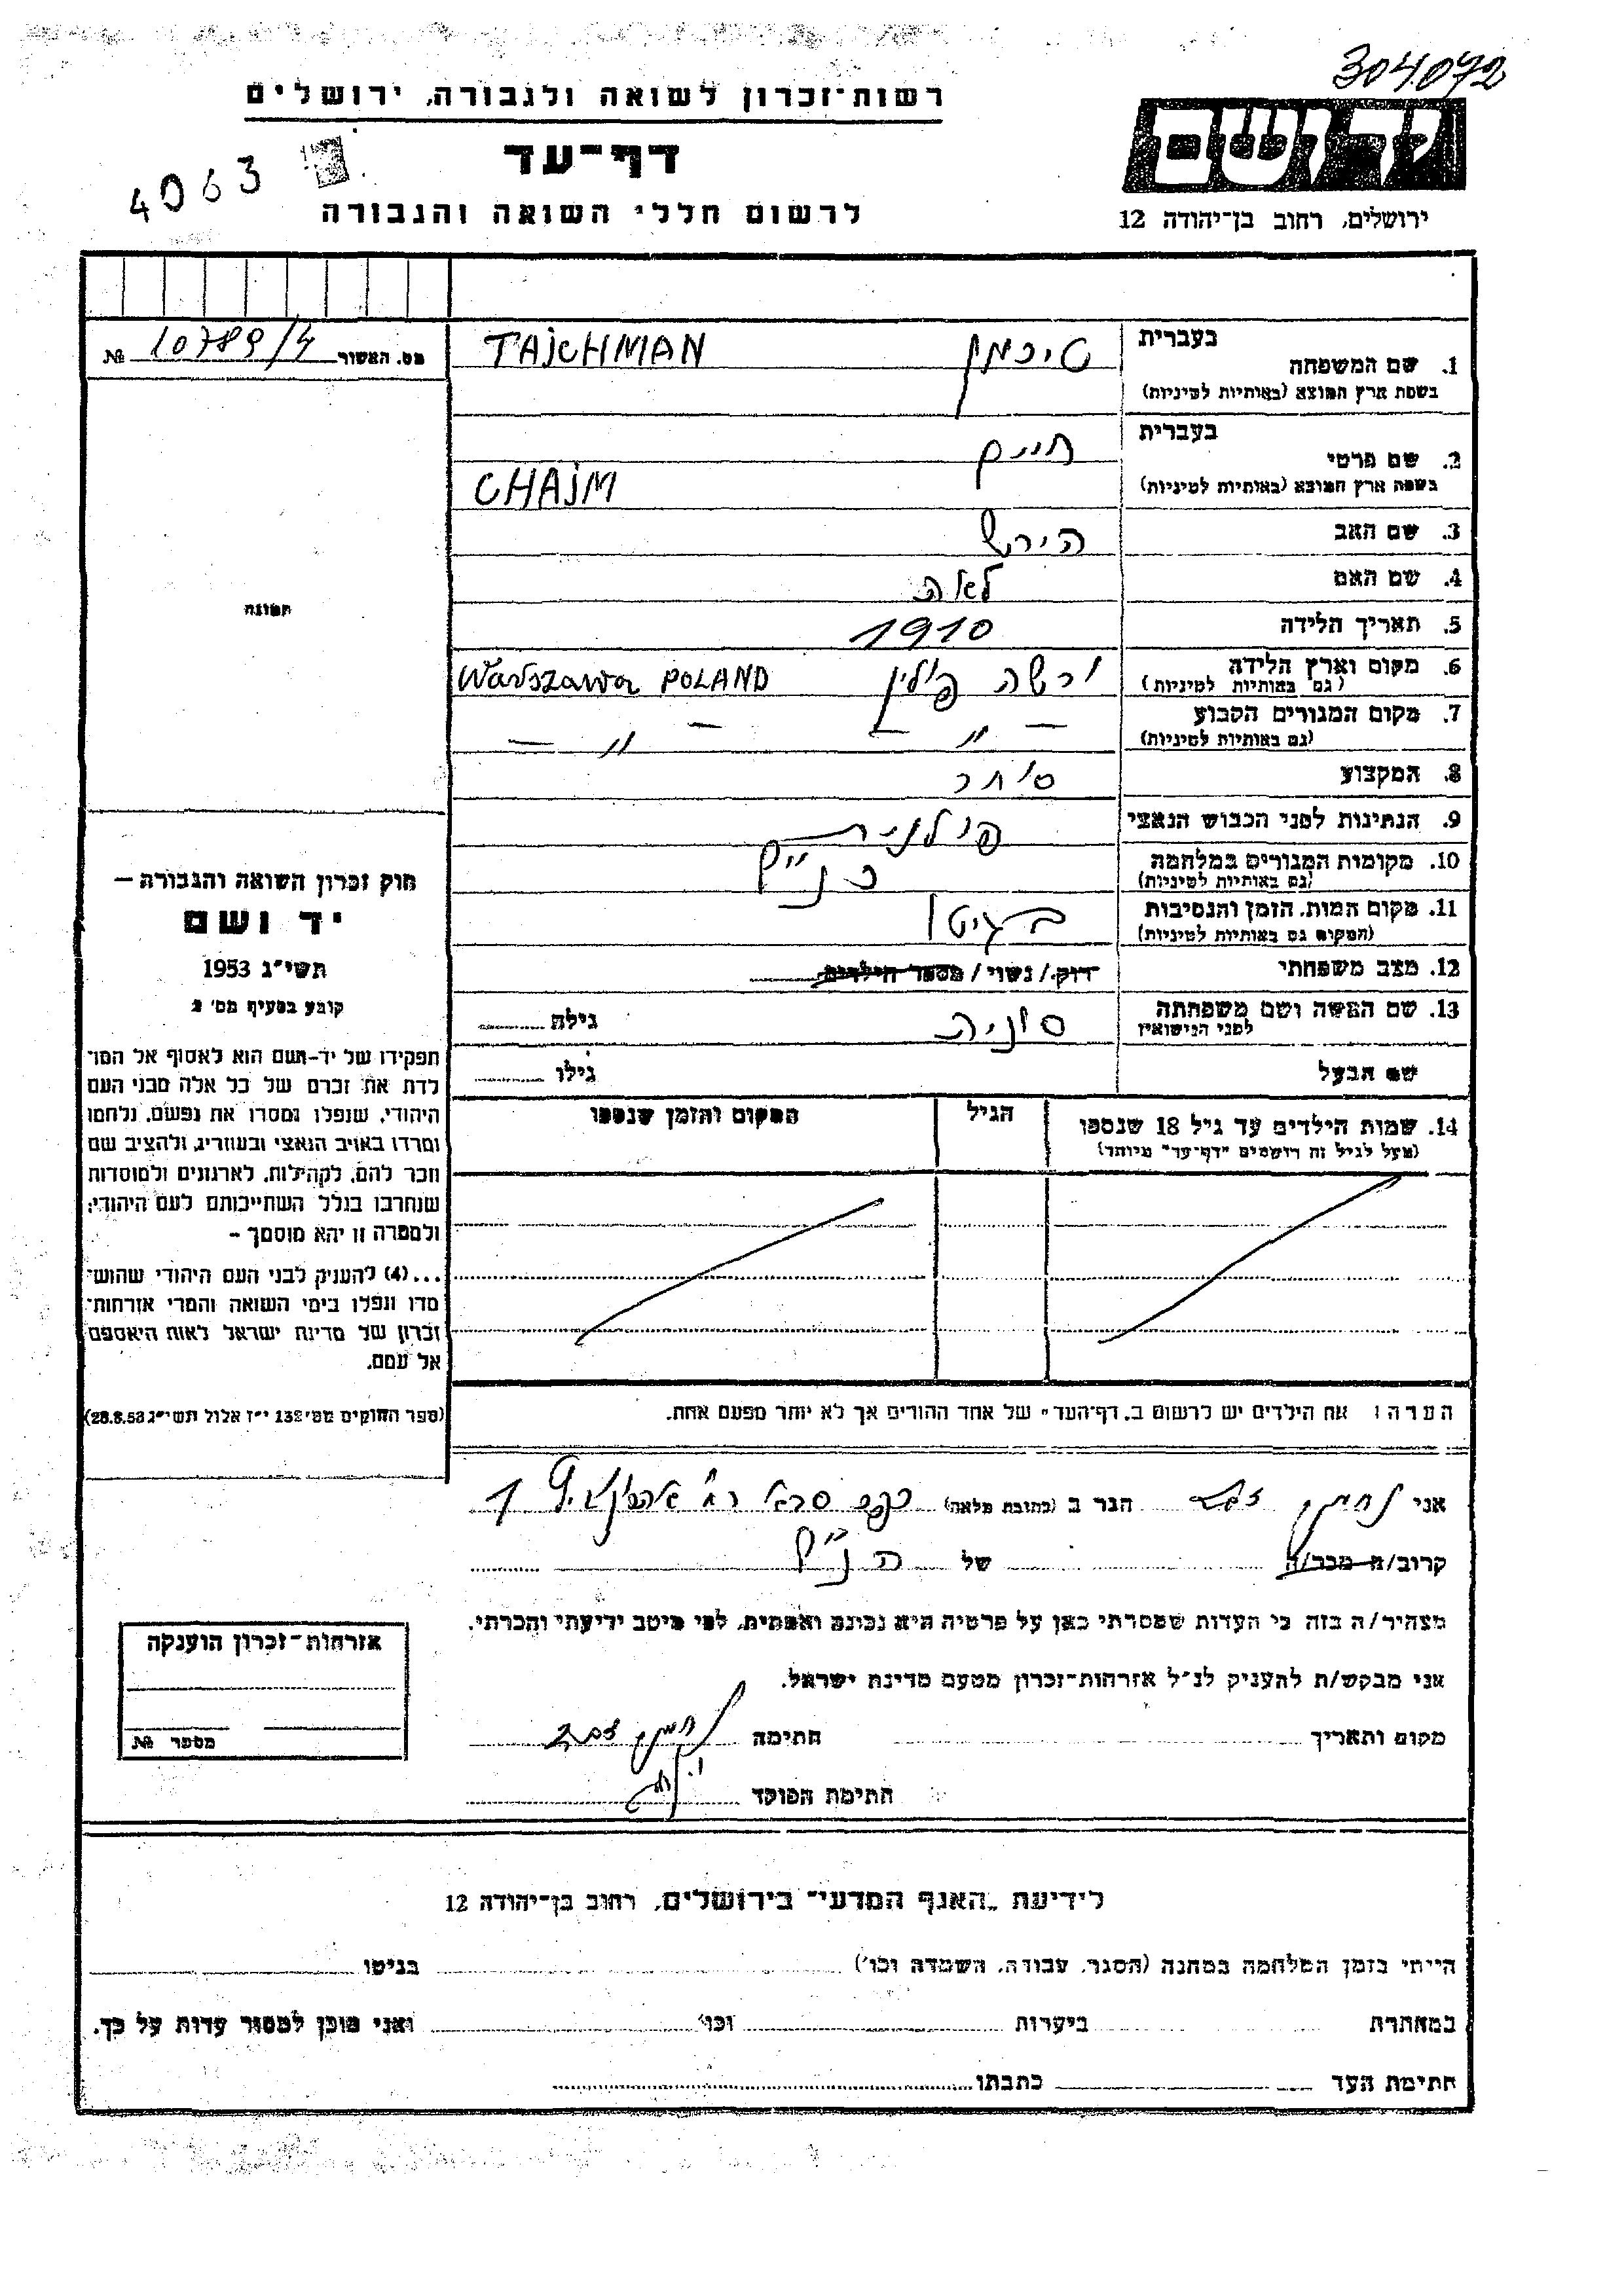 304072
רשות־זכרון לשואה ולגבורה, ירושלים
יד ושם
דף־עד
4063
לרשום חללי השואה והגבורה
ירושלים, רחוב בן־יהודה 12
מס. האשור 10789/4 №
בעברית
1. שם המשפחה טיכמן TAJCHMAN
בשפת ארץ המוצא (באותיות לטיניות)
בעברית
2. שם פרטי חיים
בשפת ארץ המוצא (באותיות לטיניות) CHAJM
3. שם האב הירש
4. שם האם לאה
תמונה
5. תאריך הלידה 1910
6. מקום וארץ הלידה ורשה פולין Warszawa POLAND
(גם באותיות לטיניות)
7. מקום המגורים הקבוע — " — — " —
(גם באותיות לטיניות)
8. המקצוע סוחר
9. הנתינות לפני הכבוש הנאצי פולנית
10. מקומות המגורים במלחמה כנ"ל
(גם באותיות לטיניות)
11. מקום המות, הזמן והנסיבות בגיטו
(המקום גם באותיות לטיניות)
12. מצב משפחתי רוק/נשוי/מספר הילדים
13. שם האשה ושם משפחתה סוניה גילה
לפני הנישואין
שם הבעל גילו
14. שמות הילדים עד גיל 18 שנספו הגיל המקום והזמן שנספו
(מעל לגיל זה רושמים "דף־עד" מיוחד)
חוק זכרון השואה והגבורה —
יד ושם
תשי"ג 1953
קובע בסעיף מס' 2
תפקידו של יד־ושם הוא לאסוף אל המו־
לדת את זכרם של כל אלה מבני העם
היהודי, שנפלו ומסרו את נפשם, נלחמו
ומרדו באויב הנאצי ובעוזריו, ולהציב שם
וזכר להם, לקהילות, לארגונים ולמוסדות
שנחרבו בגלל השתייכותם לעם היהודי;
ולמטרה זו יהא מוסמך –
...(4) להעניק לבני העם היהודי שהוש־
מדו ונפלו בימי השואה והמרי אזרחות־
זכרון של מדינת ישראל לאות היאספם
אל עמם.
(ספר החוקים מס' 132 י"ז אלול תשי"ג 28.8.53)
הערה: את הילדים יש לרשום ב„דף־העד" של אחד ההורים אך לא יותר מפעם אחת.
אני נחמן הגר ב (כתובת מלאה) 1
קרוב/ה מכר/ה של הנ"ל
מצהיר/ה בזה כי העדות שמסרתי כאן על פרטיה היא נכונה ואמתית, לפי מיטב ידיעתי והכרתי.
אני מבקש/ת להעניק לנ"ל אזרחות־זכרון מטעם מדינת ישראל.
מקום ותאריך חתימה נחמן
חתימת הפוקד
אזרחות־זכרון הוענקה
מספר №
לידיעת „האגף המדעי" בירושלים, רחוב בן־יהודה 12
הייתי בזמן המלחמה במחנה (הסגר, עבודה, השמדה וכו') בגיטו
במאתרת ביערות וכו' ואני מוכן למסור עדות על כך.
חתימת העד כתבתו